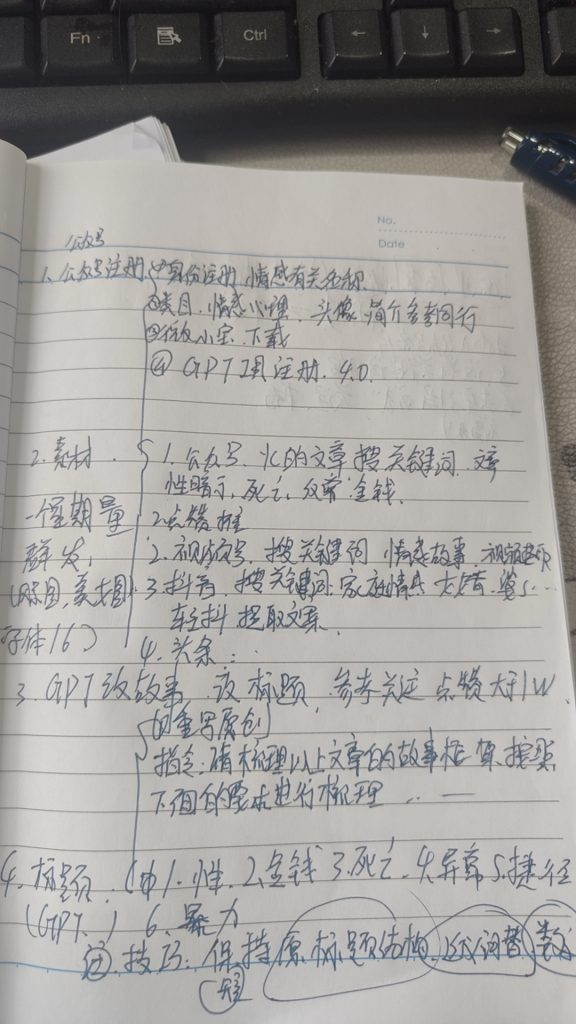 Fn
Ctrl
←
↓
→
No.
Date
公众号
1. 公众号注册 ①身份注册 情感有关名称
②类目. 情感心理. 头像 简介参考同行
③ 小宝. 下载
④ GPT 注册. 4.0.
2. 素材. 1. 公众号. 的文章 搜关键词
性暗示, 死亡, 金钱.
一个星期量 2 点赞 推
群发, 2. 视频号. 搜关键词 情感故事. 视频
(原图, 美女图) 3. 抖音. 搜关键词. 家庭情感
字体16) 轻抖 提取文案
4. 头条..
3. GPT改故事. 改标题. 参考关注 点赞大于1W
的重写原创
指令: 请梳理以上文章的故事框架. 按照
下面的要求进行梳理 .. —
4. 标题. (中 1. 性. 2. 金钱 3. 死亡. 4. 异常 5. 捷径
(GPT.) 6. 暴力
技巧: 保持原标题结构. 词替